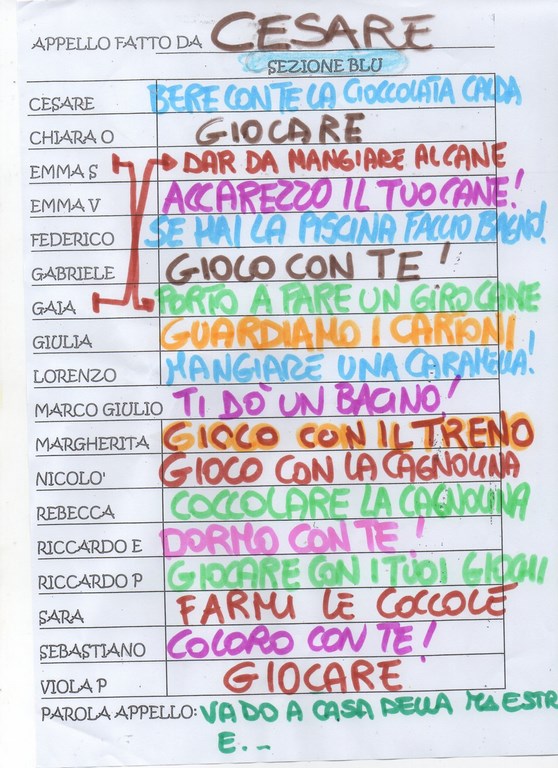 APPELLO FATTO DA CESARE
SEZIONE BLU
CESARE BERE CON TE LA CIOCCOLATA CALDA
CHIARA O GIOCARE
EMMA S DAR DA MANGIARE AL CANE
EMMA V ACCAREZZO IL TUO CANE!
FEDERICO SE HAI LA PISCINA FACCIO BAGNO!
GABRIELE GIOCO CON TE!
GAIA PORTO A FARE UN GIRO CANE
GIULIA GUARDIAMO I CARTONI
LORENZO MANGIARE UNA CARAMELLA!
MARCO GIULIO TI DÒ UN BACINO!
MARGHERITA GIOCO CON IL TRENO
NICOLO' GIOCO CON LA CAGNOLINA
REBECCA COCCOLARE LA CAGNOLINA
RICCARDO E DORMO CON TE!
RICCARDO P GIOCARE CON I TUOI GIOCHI
SARA FARMI LE COCCOLE
SEBASTIANO COLORO CON TE!
VIOLA P GIOCARE
PAROLA APPELLO: VADO A CASA DELLA MAESTR
E...